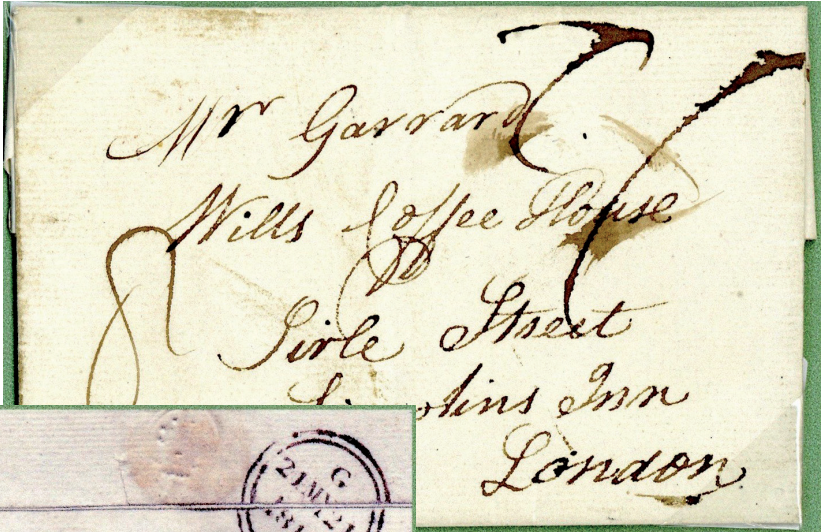 Mr Garrard
Wills Coffee House
Sirle Street
Inn
London
G
21 MY 21
181